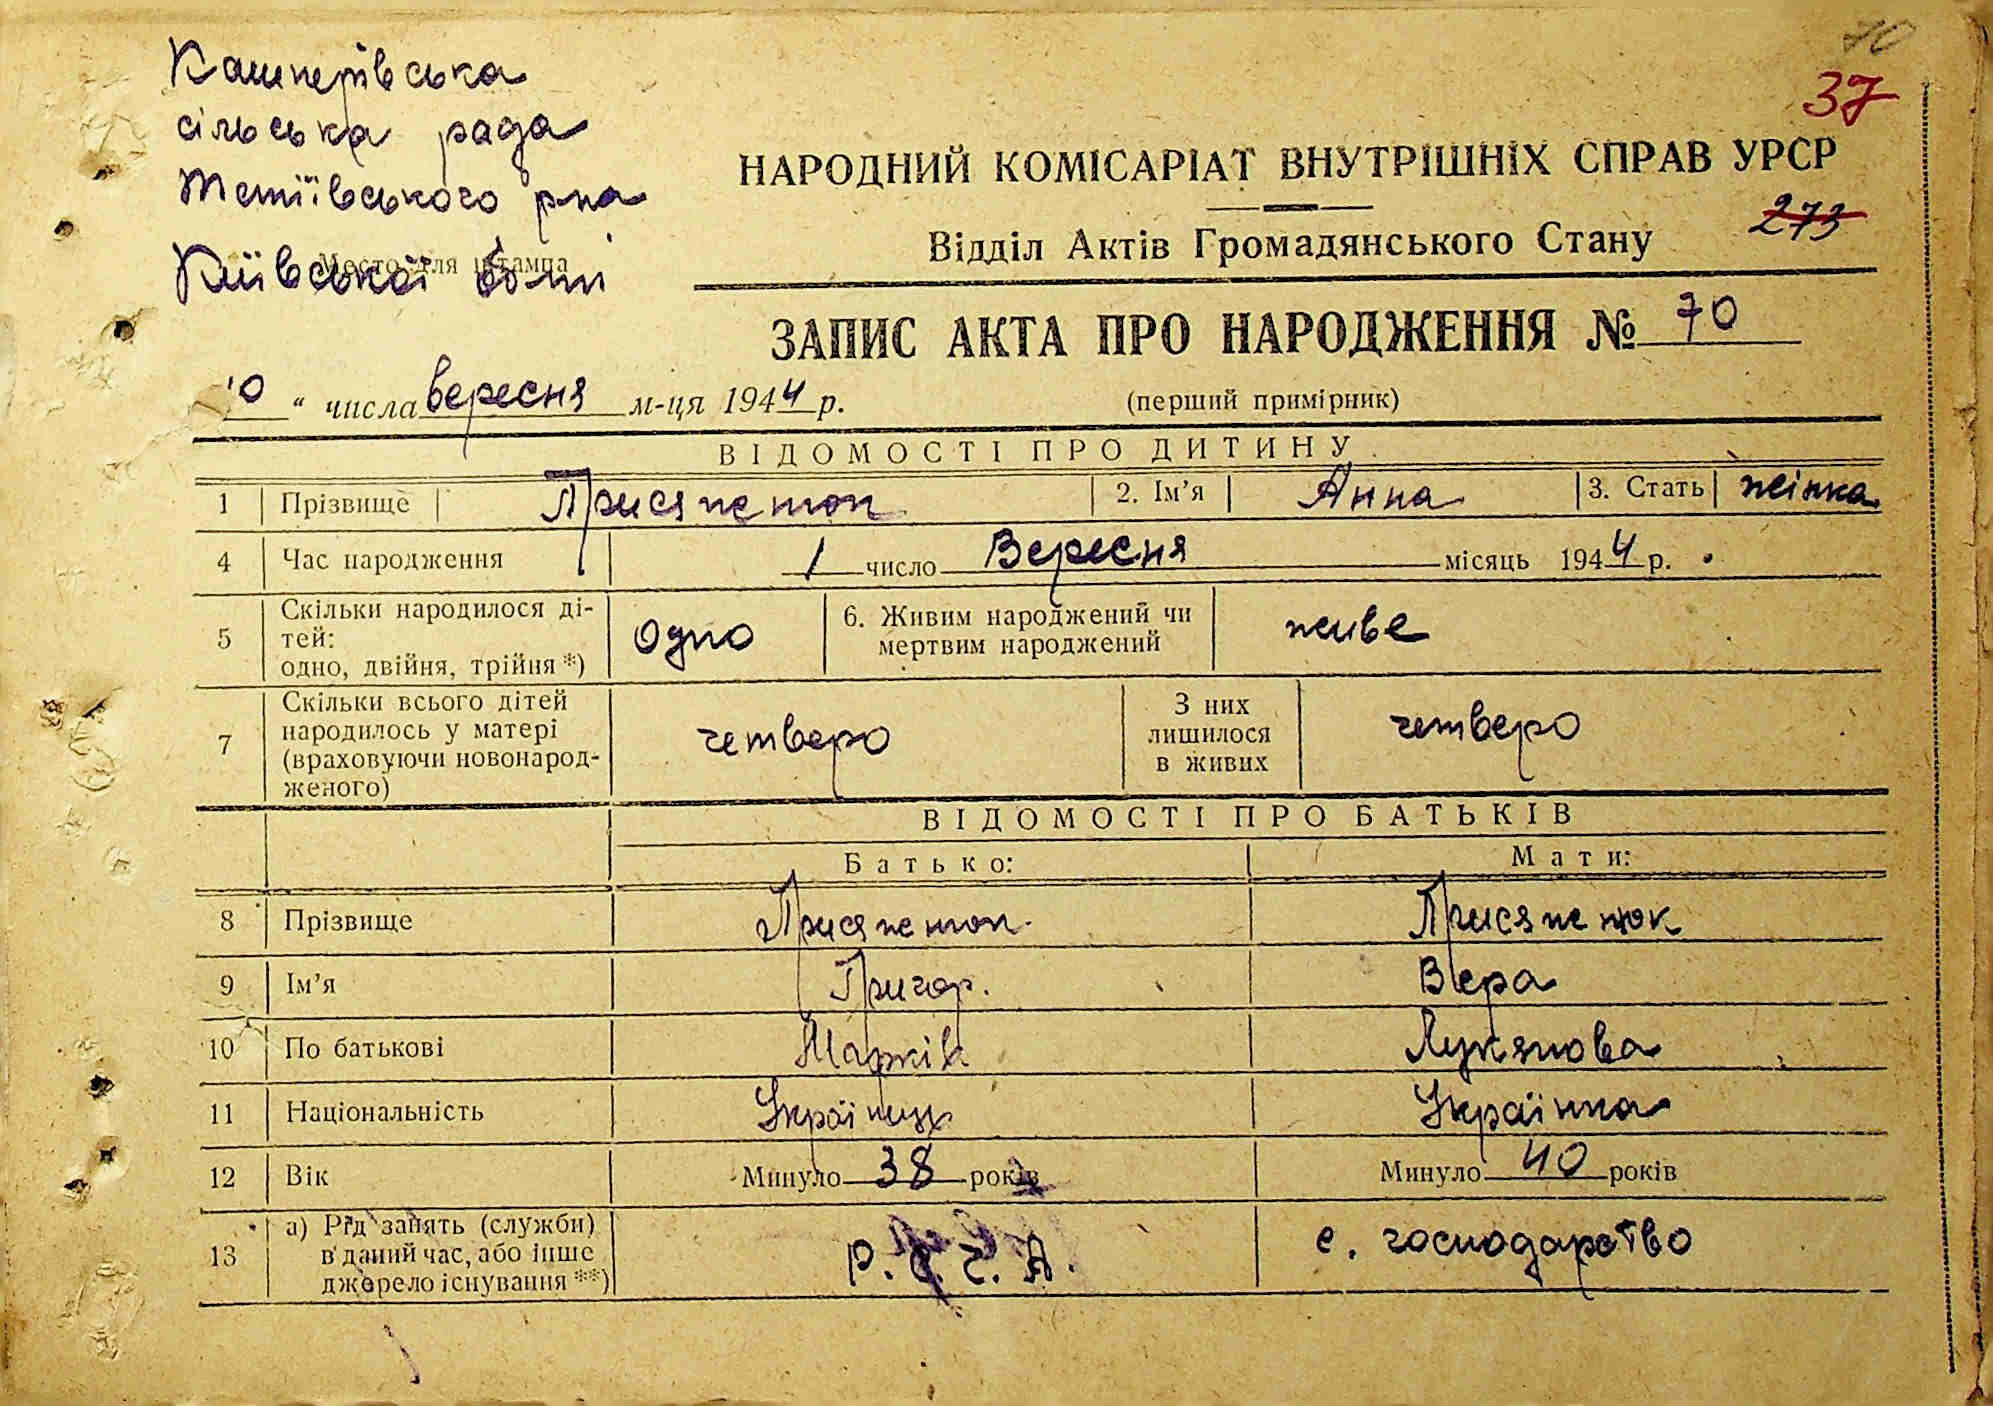 70
37
Кашперівська
сільська рада
Тетіївського р-на
Київської обл
Место для штампа
НАРОДНИЙ КОМІСАРІАТ ВНУТРІШНІХ СПРАВ УРСР
273
Відділ Актів Громадянського Стану
ЗАПИС АКТА ПРО НАРОДЖЕННЯ № 70
"10" числа вересня м-ця 1944 р. (перший примірник)
ВІДОМОСТІ ПРО ДИТИНУ
1 Прізвище Присяжнюк 2. Ім'я Анна 3. Стать жінка
4 Час народження 1 число Вересня місяць 1944 р.
5 Скільки народилося ді-
тей:
одно, двійня, трійня *) одно 6. Живим народжений чи
мертвим народжений живе
7 Скільки всього дітей
народилось у матері
(враховуючи новонарод-
женого) четверо З них
лишилося
в живих четверо
ВІДОМОСТІ ПРО БАТЬКІВ
Батько: Мати:
8 Прізвище Присяжнюк Присяжнюк
9 Ім'я Григор. Вера
10 По батькові Марків Лукянова
11 Національність Українец Українка
12 Вік Минуло 38 років Минуло 40 років
13 а) Рід занять (служби)
в даний час, або інше
джерело існування **) Р. С. Ч. А. с. господарство